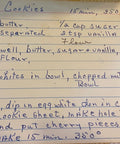 Cookies 15 min. 350
butter 1/2 cup sugar
separated 2 tsp vanilla
flour
well, butter, sugar & vanilla,
flour.
whites in bowl, chopped nuts
Bowl
dip in egg white then in
cookie sheet, make hole
and put cherry pieces
bake 15 min. 350°